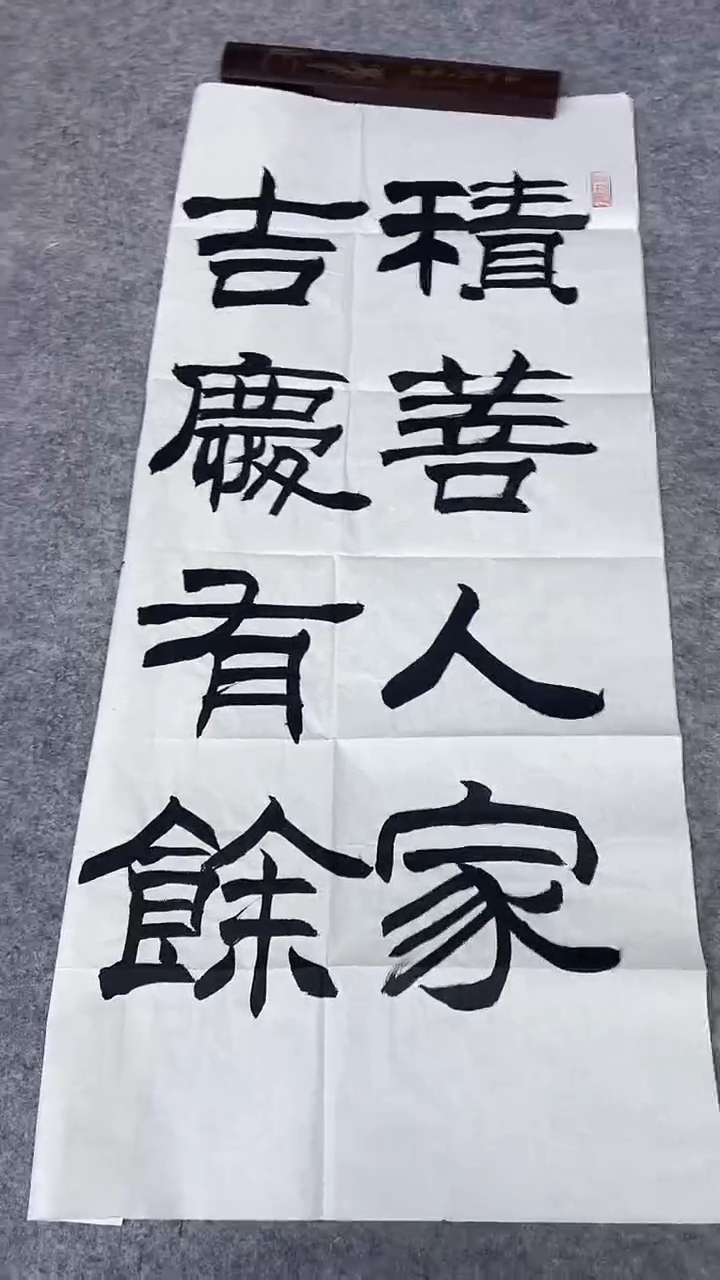 積善人家
吉慶有餘